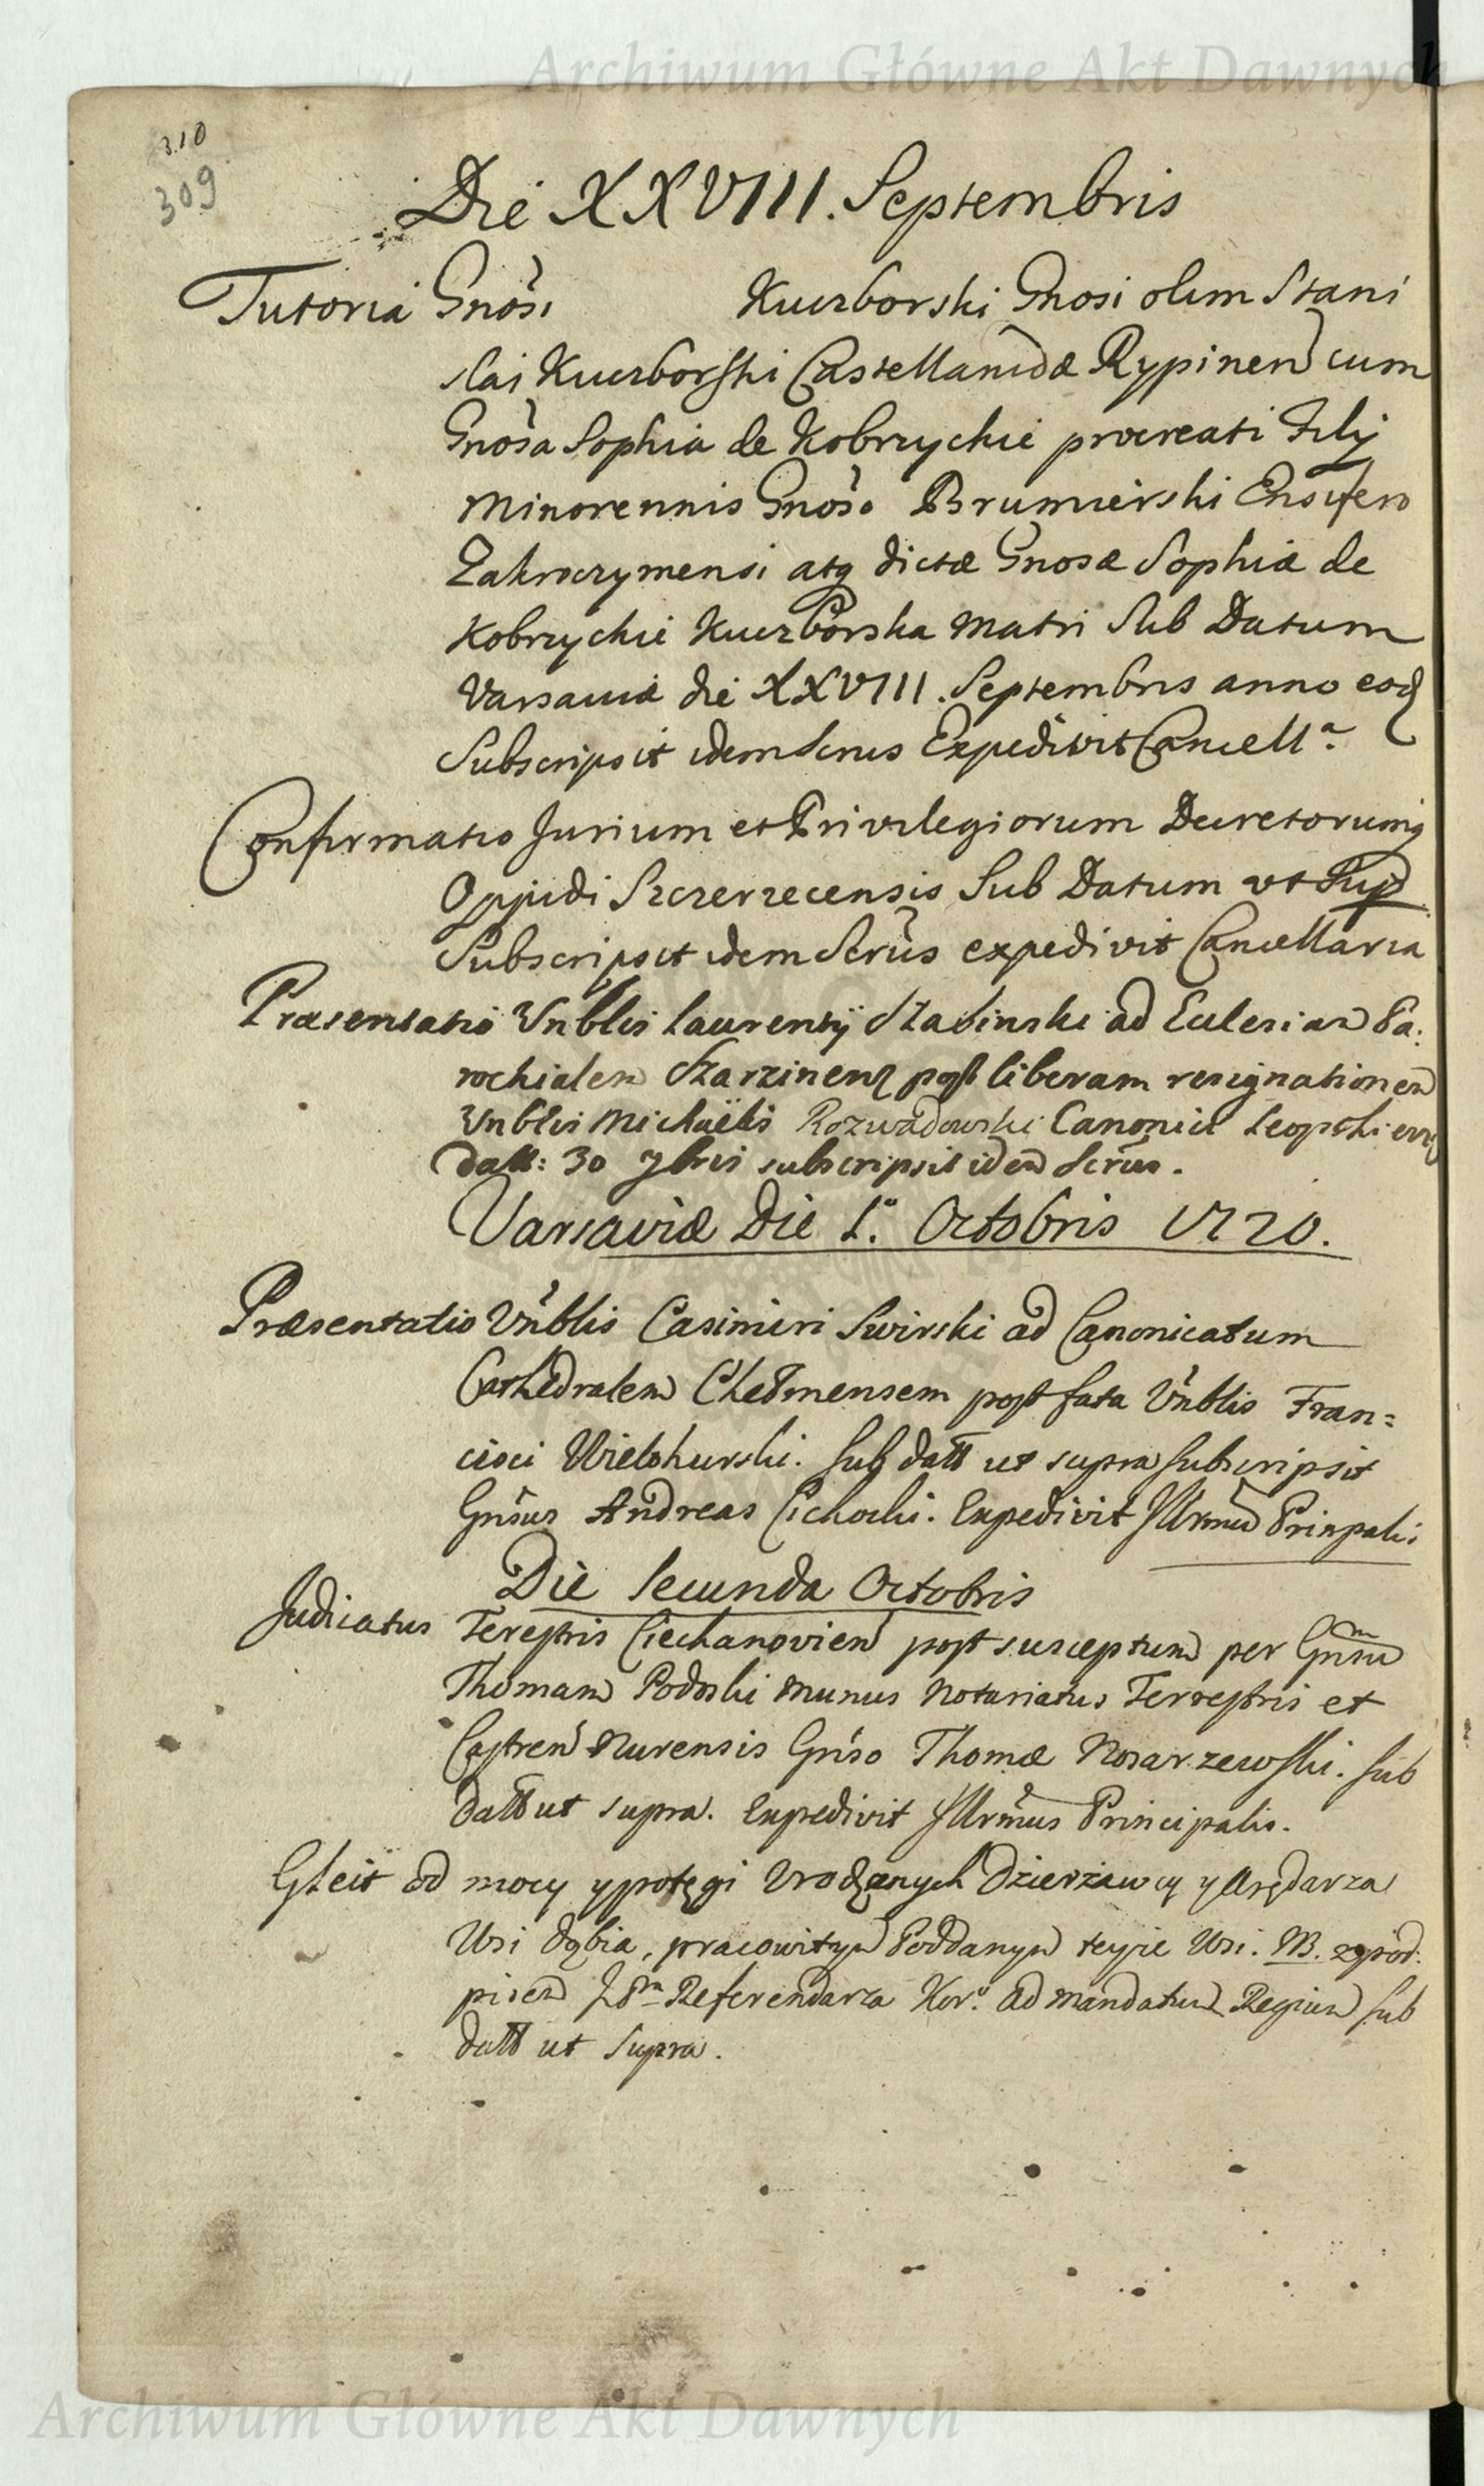 Archiwum Główne Akt Dawnych
310
309
Die XXVIII. Septembris
Tutoria Gnosi Kuczborski Gnosi olim Stani
slai Kuczborski Castellanidæ Rypinen cum
Gnosa Sophia de Kobrzyckie procreati Filij
Minorennis Gnoso Brumierski Ensifero
Zakroczymensi atq dictæ Gnosæ Sophiæ de
Kobrzyckie Kuczborska Matri Sub Datum
Varsaviæ die XXVIII. Septembris anno eod
Subscripsit idem Scrus Expedivit Cancella
Confirmatio Jurium et Privilegiorum Decretorumq
Oppidi Szczerzecensis Sub Datum vt Sup
Subscripsit idem Serus expedivit Cancellaria
Præsentatio Vnblis Laurentij ad Eclesian Pa:
rochialem post liberam resignationem
Vnblis Michaëlis Rozwadowski Canonici
datt: 30 7bris subscripsit idem Serus.
Varsaviæ Die 1o. Octobris 1720.
Præsentatio Vnblis Casimiri Swirski ad Canonicatum
Cathedralem Chełmensem post fata Vnblis Fran=
cisci Wielohurski. sub datt ut supra subscripsit
Gnsus Andreas Cichocki. Expedivit Illrmus Prinpalis
Die Secunda Octobris
Judicatus Terestris Ciechanovien post susceptum per Gnsum
Thomam Podoski munus Notariatus Terrestris et
Castren Nurensis Gnso Thomæ Nosarzewski. sub
datt ut supra. Expedivit Illrmus Principalis.
Gleit od mocy y potęgi Vrodzonych Dzierżawcy y Arędarza
Wsi Dąbia, pracowitym Poddanym teyże Wsi. NB. z pod:
pisem JPa Referendarza Kor: ad mandatum Regium sub
datt ut supra.
Archiwum Główne Akt Dawnych